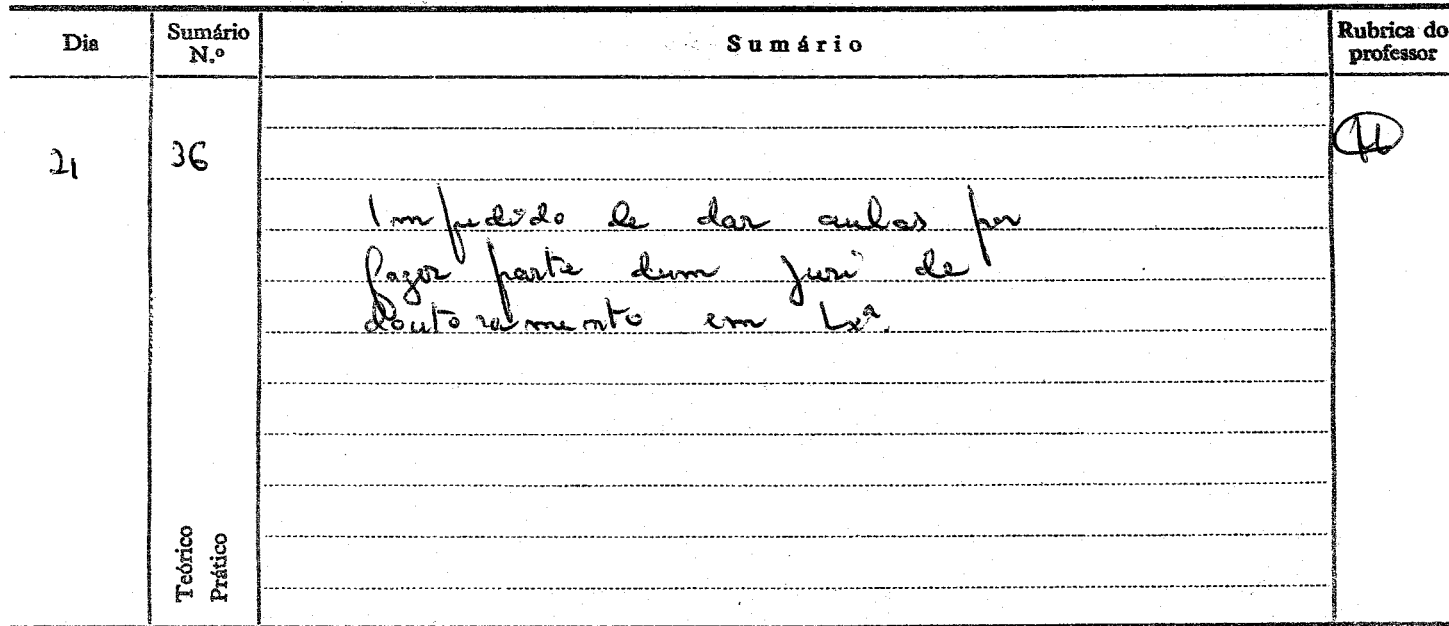 Dia Sumário N.º Sumário Rubrica do professor
21 36
Impedido de dar aulas por
fazer parte dum juri de
doutoramento em Lxª.
Teórico
Prático